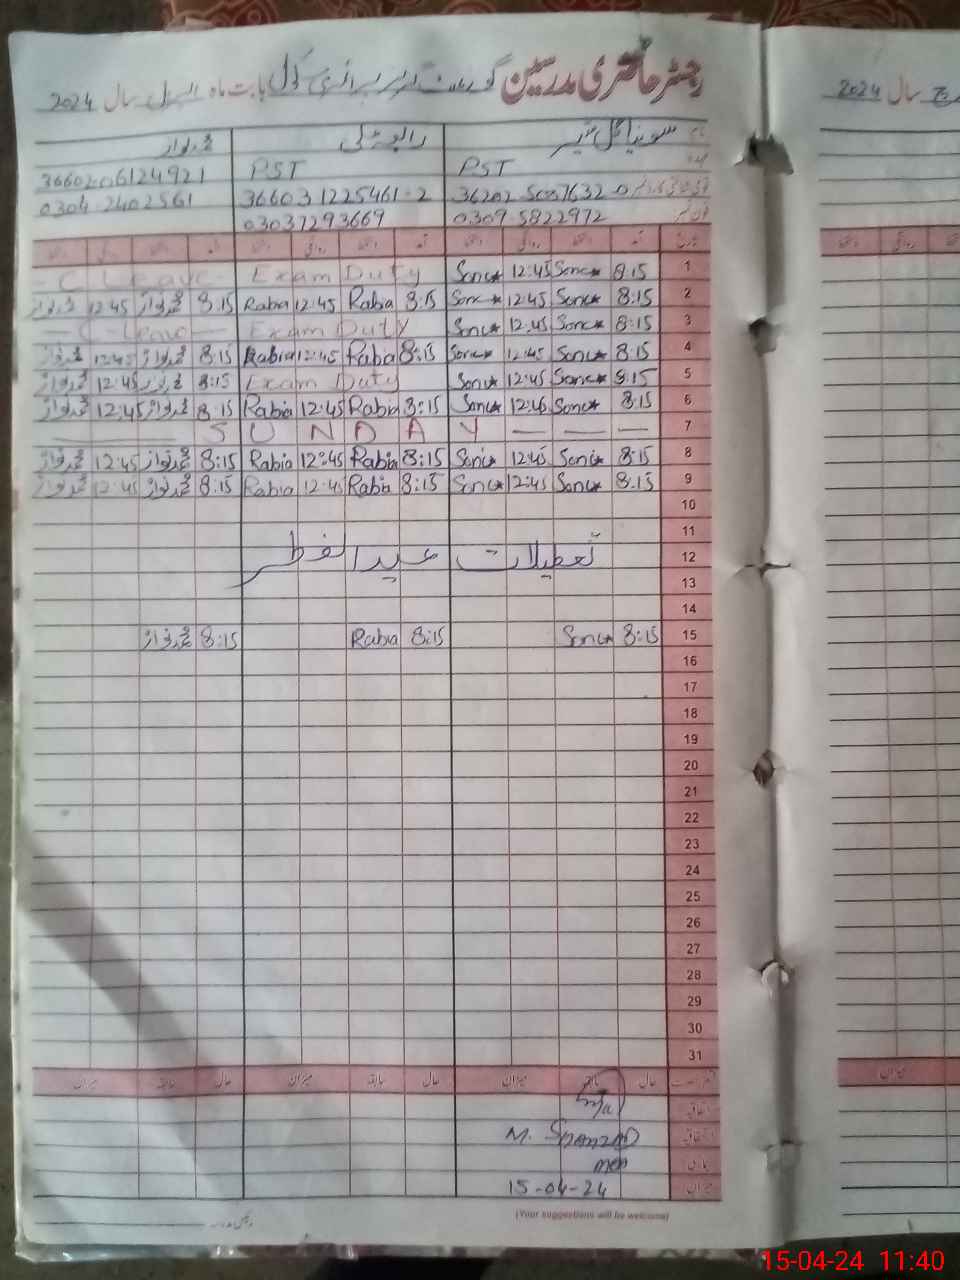 رجسٹر حاضری مدرسین گورنمنٹ پرائمری سکول بابت ماہ اپریل سال 2024
نام سونیا گل رابعہ محمد نواز
عہدہ PST PST
36202 5087632-0 366031225461-2 3660206124921
فون نمبر 0309 5822972 03037293669 0304 2402561
تاریخ آمد دستخط روانگی دستخط آمد دستخط روانگی دستخط آمد دستخط روانگی دستخط
1 8:15 Sonia 12:45 Sonia Exam Duty C Leave
2 8:15 Sonia 12:45 Sonia 8:15 Rabia 12:45 Rabia 8:15 محمد نواز 12:45 محمد نواز
3 8:15 Sonia 12:45 Sonia Exam Duty C Leave
4 8:15 Sonia 12:45 Sonia 8:15 Rabia 12:45 Rabia 8:15 محمد نواز 12:45 محمد نواز
5 8:15 Sonia 12:45 Sonia Exam Duty 8:15 محمد نواز 12:45 محمد نواز
6 8:15 Sonia 12:45 Sonia 8:15 Rabia 12:45 Rabia 8:15 محمد نواز 12:45 محمد نواز
7 SUNDAY
8 8:15 Sonia 12:45 Sonia 8:15 Rabia 12:45 Rabia 8:15 محمد نواز 12:45 محمد نواز
9 8:15 Sonia 12:45 Sonia 8:15 Rabia 12:45 Rabia 8:15 محمد نواز 12:45 محمد نواز
10
11
12 تعطیلات عید الفطر
13
14
15 8:15 Sonia 8:15 Rabia 8:15 محمد نواز
16
17
18
19
20
21
22
23
24
25
26
27
28
29
30
31
حال سابقہ میزان حال سابقہ میزان حال سابقہ میزان
اتفاقیہ
M.
میزان 15-04-24
(Your suggestions will be welcome)
سال 2024
میزان
15-04-24 11:40